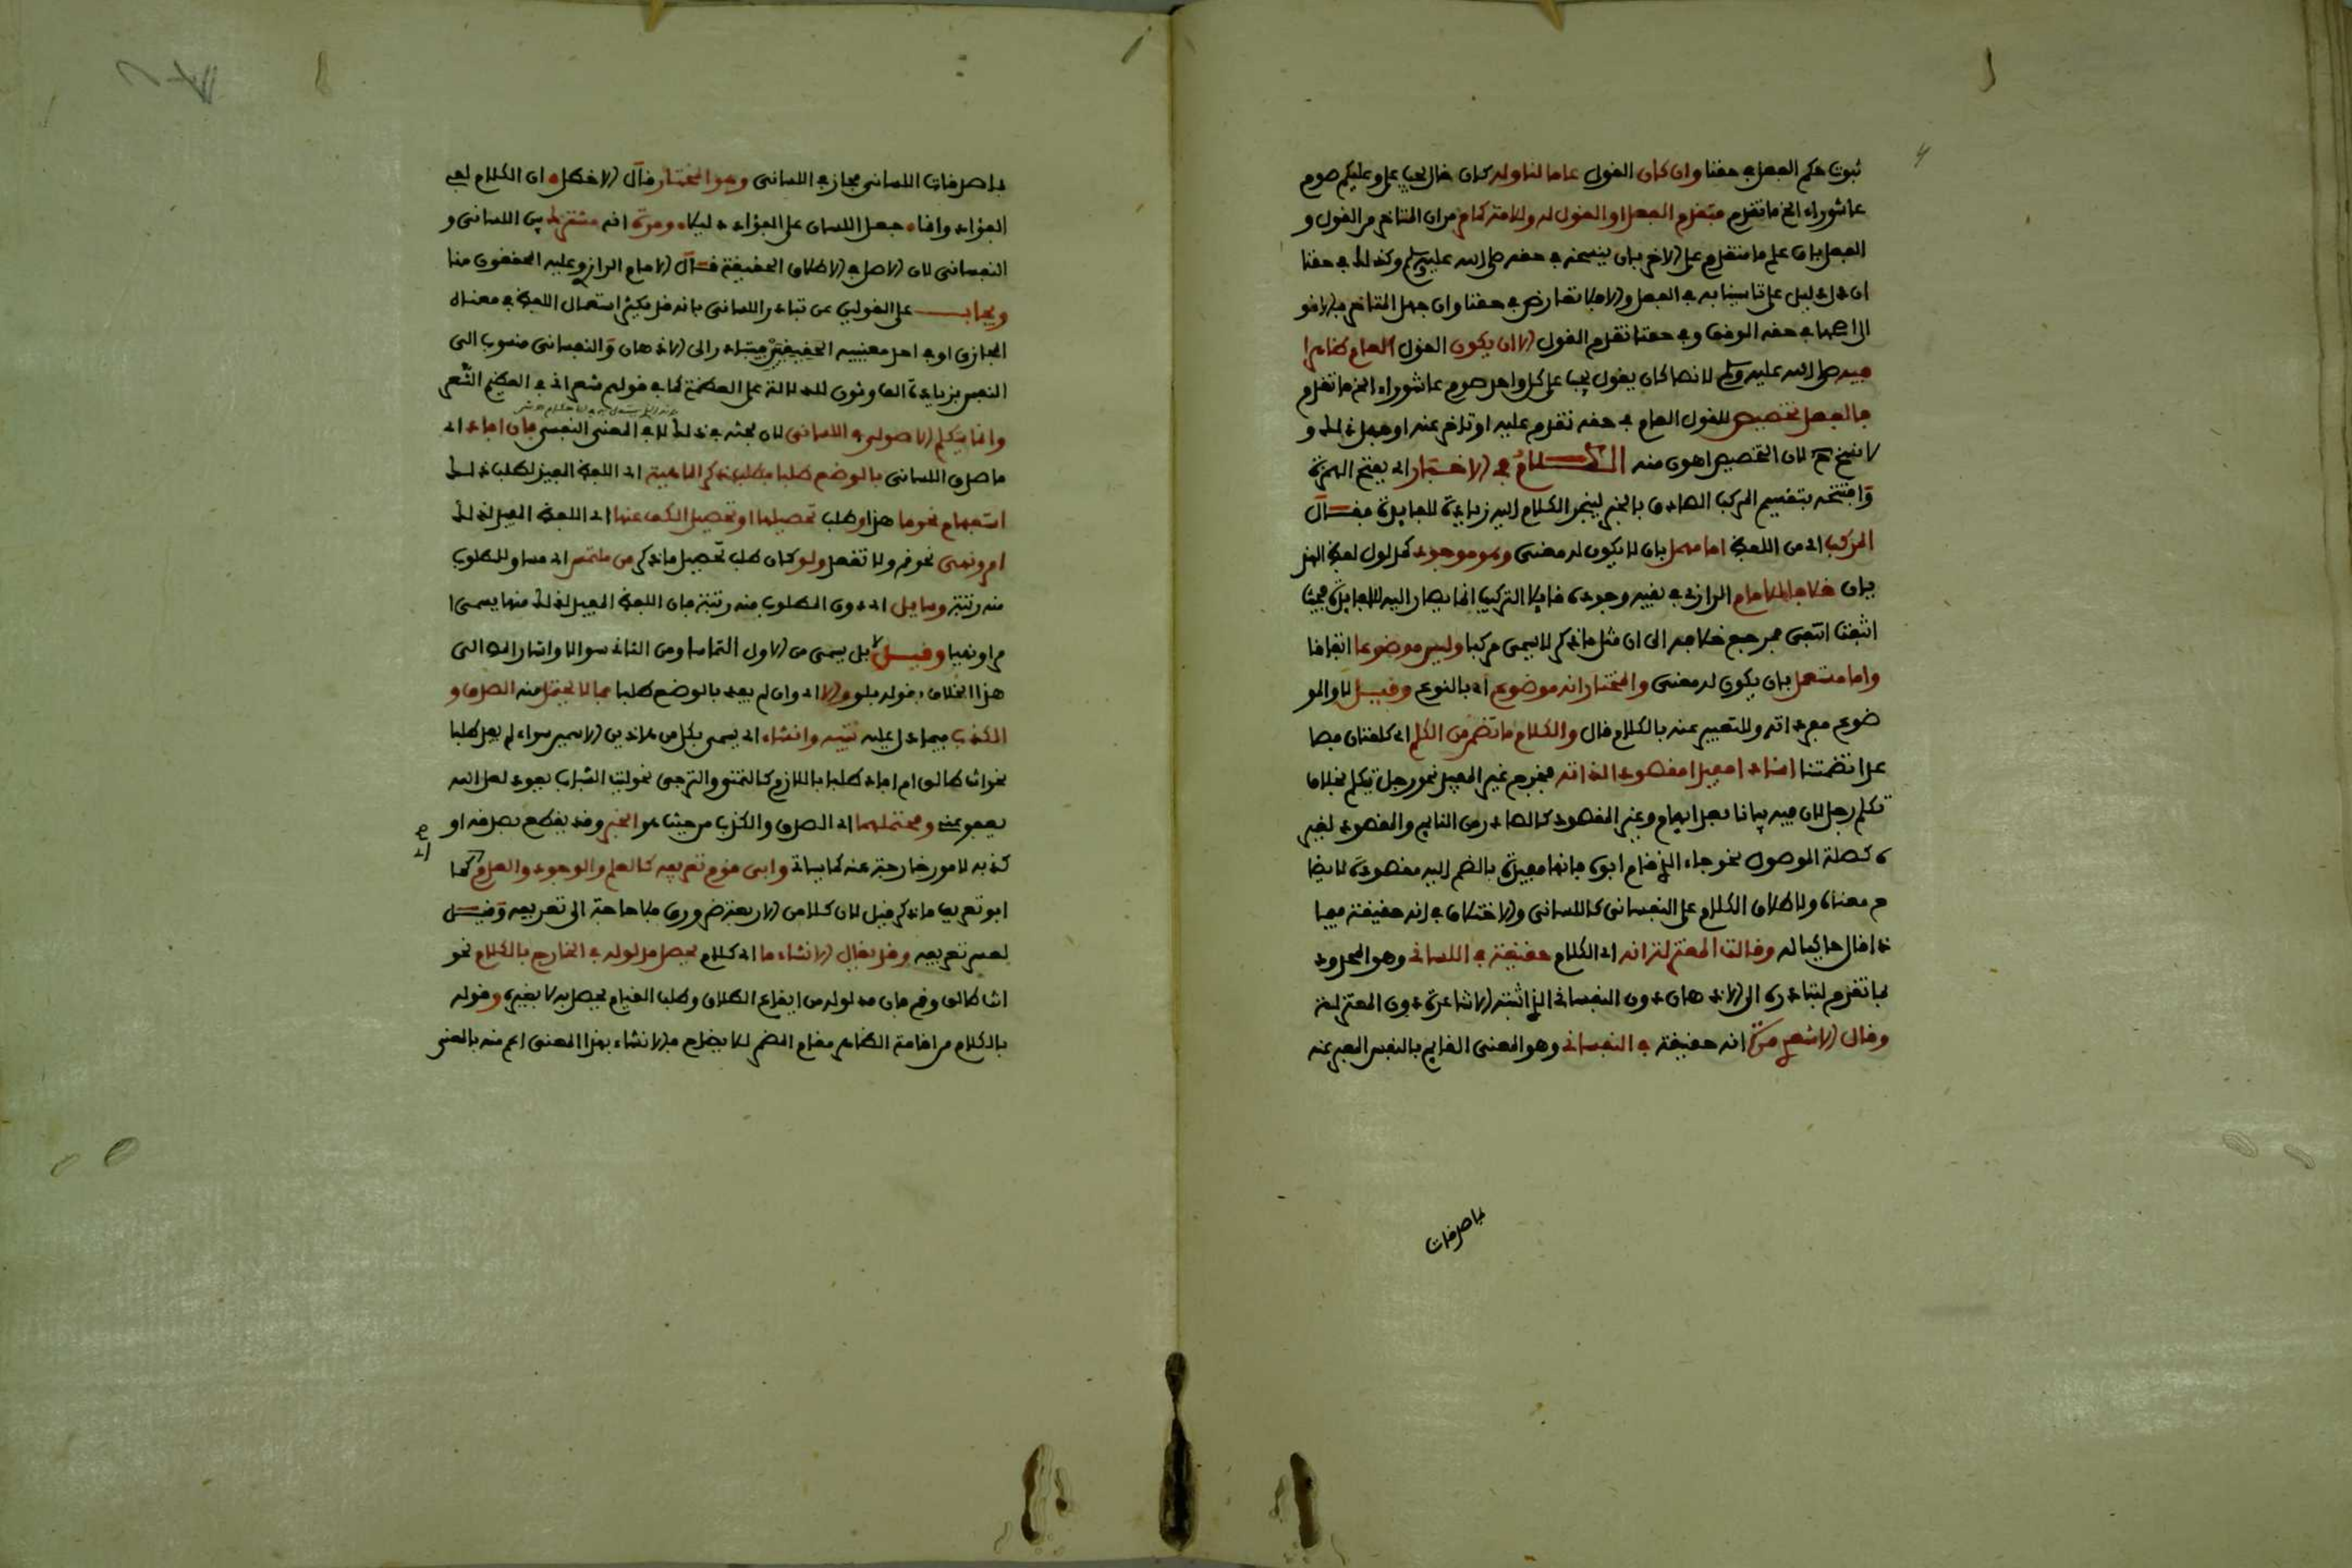 ثبوت حكم الفعل في حقنا وان كان القول عاما لنا وله كان قال يجب علي وعليكم صوم
عاشوراء الخ ما تقدم فتقدم الفعل او القول له وللامة كما مر من ان المتاخر من القول و
الفعل بان علم متقدم على الاخر بان ينسخه في حقه صلى الله عليه وسلم وكذلك في حقنا
ان دل دليل على تاسينا به في الفعل والا فلا تعارض في حقنا وان جهل المتاخر فالاقو
ال اصحها في حقه الوقف وفي حقنا تقدم القول الا ان يكون القول العام ظاهرا
فيه صلى الله عليه وسلم لا نصا كان يقول يجب على كل واحد صوم عاشوراء الخ ما تقدم
فالفعل تخصيص للقول العام في حقه تقدم عليه او تاخر عنه او جهل ذلك و
لا نسخ ح لان التخصيص اهون منه الكـــلام في الاخبار اي بفتح الهمزة
وافتتحه بتقسيم المركب الصادق بالخبر لينجر الكلام اليه زيادة للفايدة فقـــال
المركب اي من اللفظ اما مهمل بان لا يكون له معنى وهو موجود كمدلول لفظ الهذ
يان خلافا للامام الرازي في نفيه وجوده قايلا التركيب انما يصار اليه للافادة فحيث
انتفت انتفى فمرجع خلافه الى ان مثل ما ذكر لا يسمى مركبا وليس موضوعا اتفاقا
واما مستعمل بان يكون له معنى والمختار انه موضوع اي بالنوع وقيـــل لا والمو
ضوع مفرداته وللتعبير عنه بالكلام قال والكلام ما تضمن من الكلم اي كلمتان فصا
عدا تضمنتا اسنادا مفيدا مقصودا لذاته فخرج غير المفيد نحو رجل يتكلم بخلاف
تكلم رجل لان فيه بيانا بعد ابهام وغير المقصود كالصادر من النايم والمقصود لغير
ه كصلة الموصول نحو جاء الذي قام ابوه فانها مفيدة بالضم اليه مقصودة لايضا
ح معناه ولاطلاق الكلام على النفساني كاللساني والاختلاف في انه حقيقة فيما
ذا قال حاكيا له وقالت المعتزلة انه اي الكلام حقيقة في اللساني وهو المحدود
بما تقدم لتبادره الى الاذهان دون النفساني الذي اثبته الاشاعرة دون المعتزلة
وقال الاشعري مرة انه حقيقة في النفساني وهو المعنى القايم بالنفس المعبر عنه
ما صدقات
بما صدقات اللساني مجاز في اللساني وهو المختار قال الاخطل ه ان الكلام لفي
الفؤاد وانما ه جعل اللسان على الفؤاد دليلا ه ومرة انه مشترك بين اللساني و
النفساني لان الاصل في الاطلاق الحقيقة قـــال الامام الرازي وعليه المحققون منا
ويجاب على القولين عن تبادر اللساني بانه قد يكثر استعمال اللفظ في معناه
المجازي او في احد معنييه الحقيقيين فيتبادر الى الاذهان والنفساني منسوب الى
النفس بزيادة الف ونون للدلالة على العظمة كما في قولهم شعراني في العظيم الشعر
وانما يتكلم الاصولي في اللساني لان بحثه في ذلك لا في المعنى النفسي فان افاد اي
ما صدق اللساني بالوضع طلبا فطلب ذكر الماهية اي اللفظ المفيد لطلب ذلك
استفهام نحو ما هذا وطلب تحصيلها او تحصيل الكف عنها اي اللفظ المفيد لذلك
امر ونهي نحو قم ولا تقعد ولو كان طلب تحصيل ما ذكر من ملتمس اي مساو للمطلوب
منه رتبة وسايل اي دون المطلوب منه رتبة فان اللفظ المفيد لذلك منهما يسمى ا
مرا ونهيا وقيـــل لا بل يسمى من الاول التماسا ومن الثاني سوالا واشار الى
هذا الخلاف بقوله ولو والا اي وان لم يفد بالوضع طلبا فما لا يحتمل منه الصدق و
الكذب فيما دل عليه تنبيه وانشاء اي يسمى بكل من هاذين الاسمين سواء لم يفد طلبا
نحو انت طالق ام افاد طلبا باللازم كالتمني والترجي نحو ليت الشباب يعود لعل الله
يعفو عني ومحتملهما اي الصدق والكذب من حيث هو الخبر وقد يقطع بصدقه او
كذبه لامور خارجة عنه كما ياتي وابى قوم تعريفه كالعلم والوجود والعدم كما
ابو تعريف ما ذكر قيل لان كلا من الاربعة ضروري فلا حاجة الى تعريفه وقيـــل
لعسر تعريفه وقد يقال الانشاء ما اي كلام يحصل مدلوله في الخارج بالكلام نحو
انت طالق وقم فان مدلوله من ايقاع الطلاق وطلب القيام يحصل به لا بغيره وقوله
بالكلام من اقامة الظاهر مقام المضمر للايضاح فالانشاء بهذا المعنى اعم منه بالمعنى